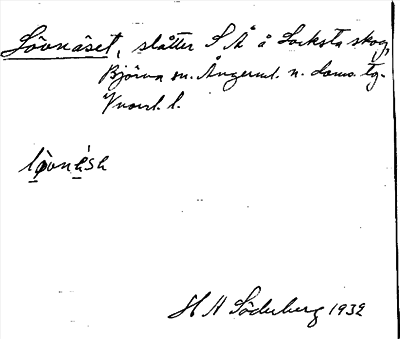 Lövnäset, slåtter S Å å Locksta skog,
Björna sn. Ångerml. n. doms. tg.
Vnorrl. l.
lövnèsh
H A Söderberg 1932